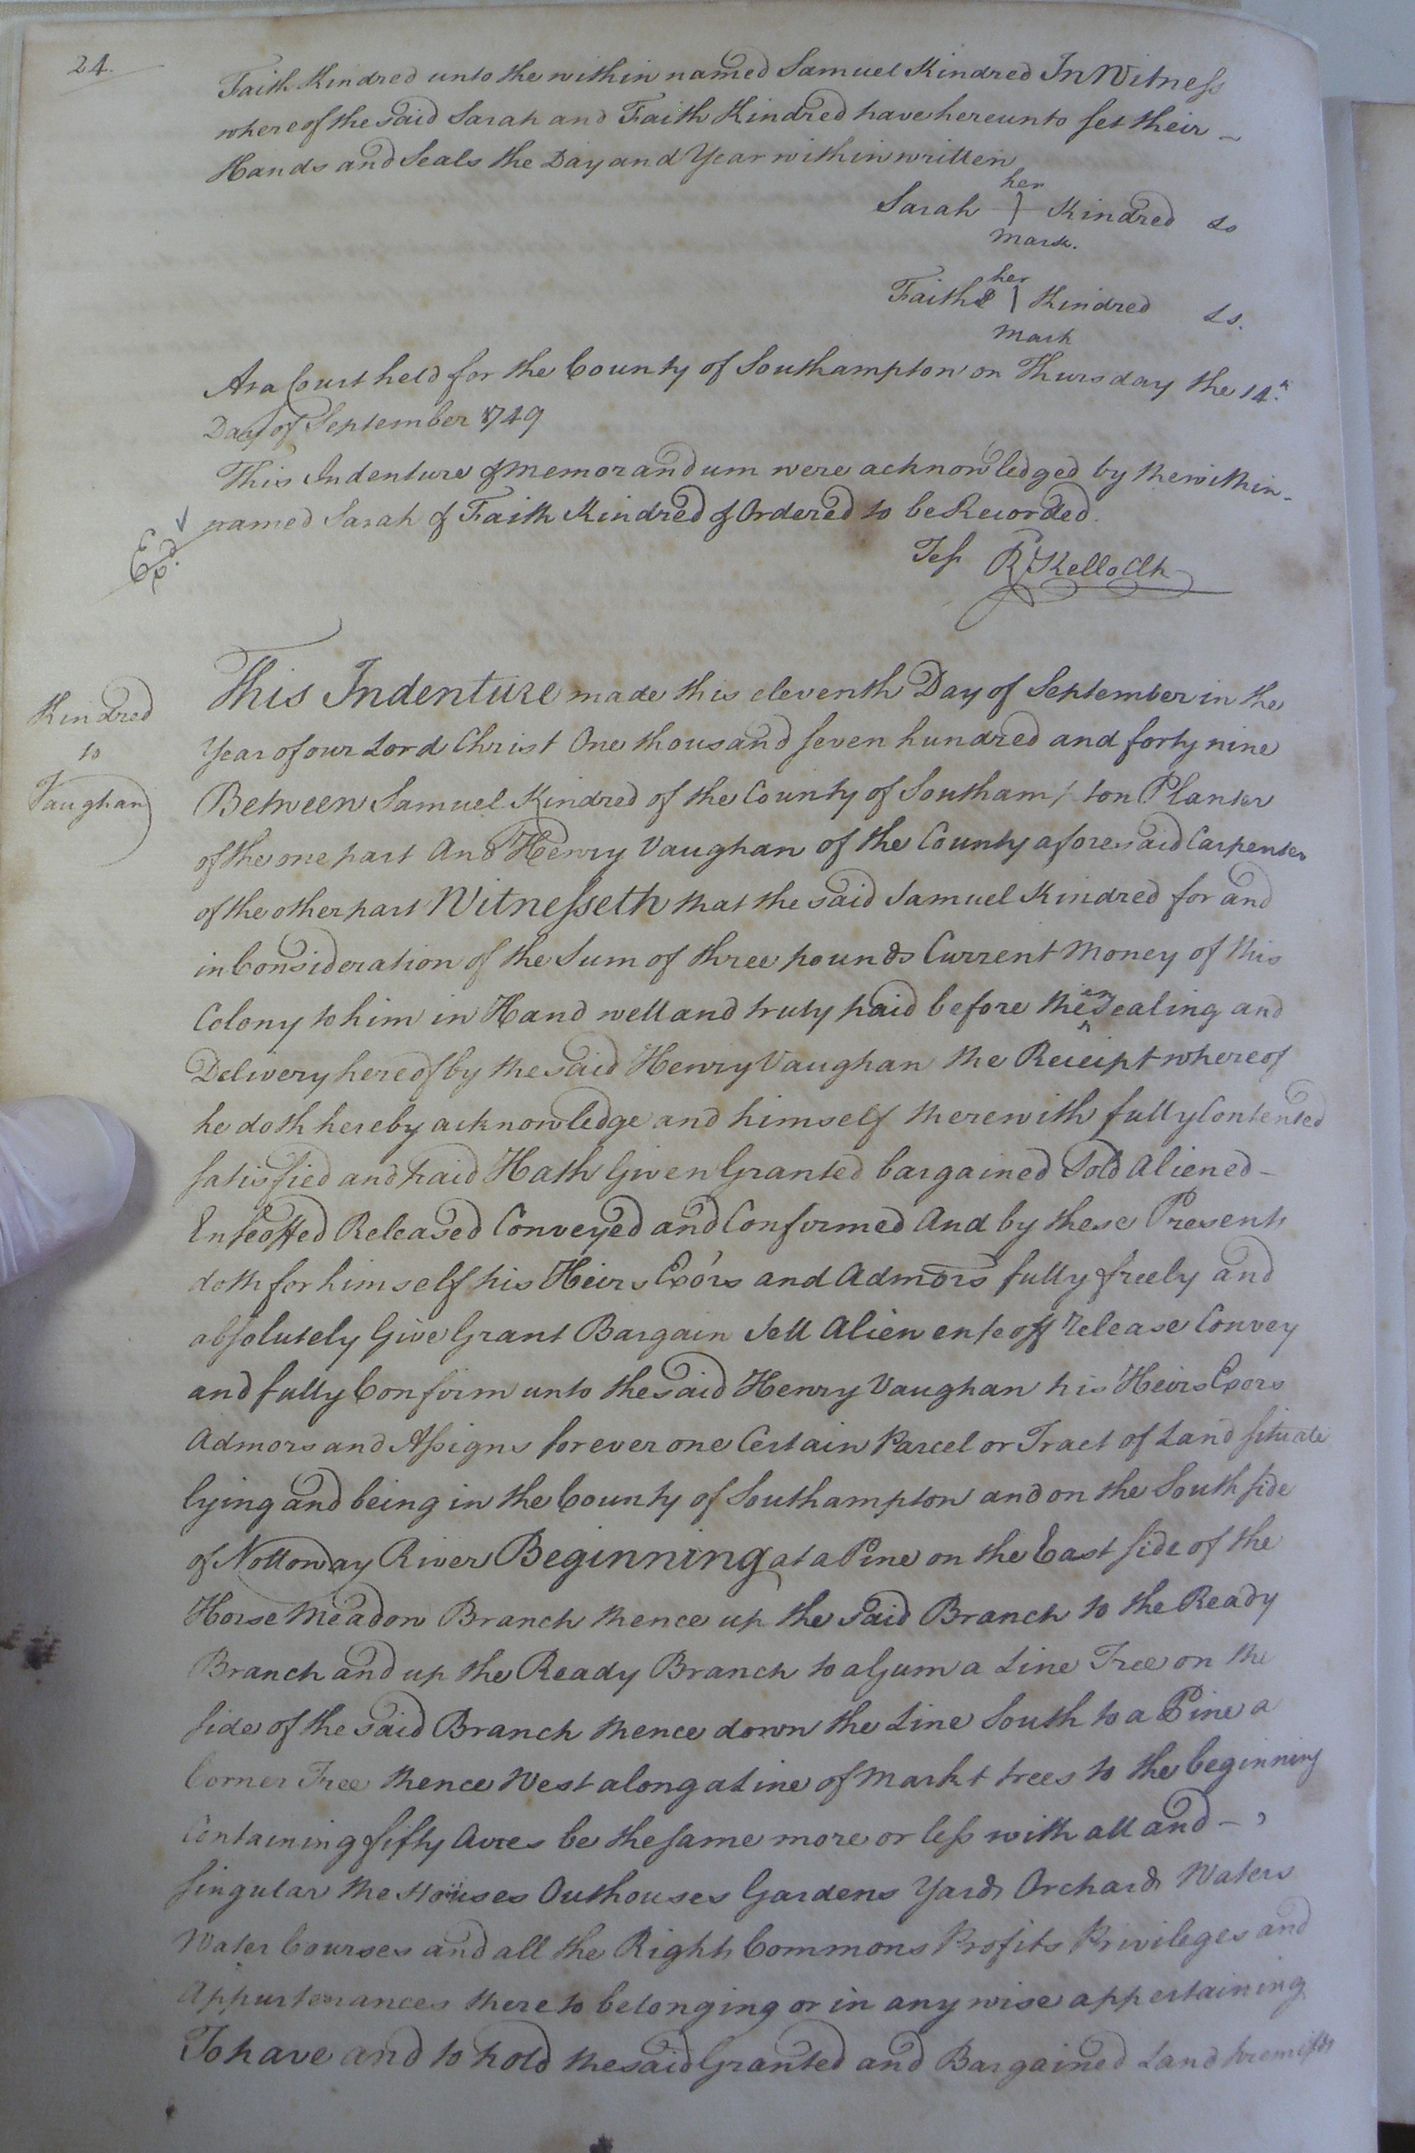 24.
Faith Kindred unto the within named Samuel Kindred In Witness
whereof the said Sarah and Faith Kindred have hereunto set their
Hands and Seals the Day and Year within written
her
Sarah Kindred Ls
mark.
her
Faith Kindred Ls.
mark
At a Court held for the County of Southampton on Thursday the 14.th
Day of September 1749
This Indenture & memorandum were acknowledged by the within
named Sarah & Faith Kindred & Ordered to be Recorded.
Exd.
Tes R Kello Clk
Kindred
to
Vaughan
This Indenture made this eleventh Day of September in the
Year of our Lord Christ One thousand seven hundred and forty nine
Between Samuel Kindred of the County of Southampton Planter
of the one part And Henry Vaughan of the County aforesaid Carpenter
of the other part Witnesseth that the said Samuel Kindred for and
in Consideration of the Sum of three pounds Current Money of this
Colony to him in Hand well and truly paid before the ensealing and
Delivery hereof by the said Henry Vaughan the Receipt whereof
he doth hereby acknowledge and himself therewith fully Contented
satisfied and paid Hath Given Granted bargained Sold Aliened
Enfeoffed Released Conveyed and Confirmed And by these Presents
doth for himself his Heirs Exors and Admors fully freely and
absolutely Give Grant Bargain Sell Alien enfeoff release Convey
and fully Confirm unto the said Henry Vaughan his Heirs Exors
Admors and Assigns forever one Certain Parcel or Tract of Land situate
lying and being in the County of Southampton and on the South side
of Nottoway River Beginning at a Pine on the East side of the
Horse Meadow Branch thence up the said Branch to the Ready
Branch and up the Ready Branch to a Gum a Line Tree on the
side of the said Branch thence down the Line South to a Pine a
Corner Tree thence West along a Line of markt trees to the beginning
Containing fifty Acres be the same more or less with all and
singular the Houses Outhouses Gardens Yards Orchards Waters
Water Courses and all the Rights Commons Profits Privileges and
Appurtenances there to belonging or in any wise appertaining
To have and to hold the said Granted and Bargained Land premises